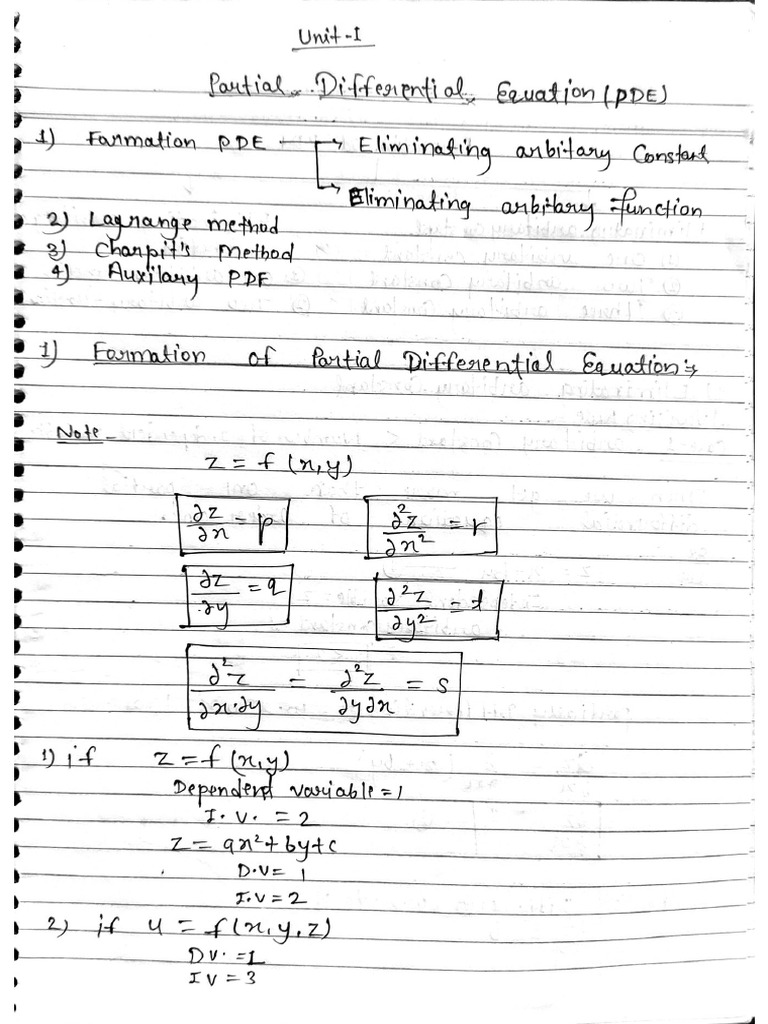 Unit-I
Partial Differential Equation (PDE)
1) Formation PDE → Eliminating arbitary Constant
→ Eliminating arbitary function
2) Lagrange method
3) Charpit's Method
4) Auxilary PDE
1) Formation of Partial Differential Equation:→
Note -
z = f (x,y)
∂z/∂x = p    ∂²z/∂x² = r
∂z/∂y = q    ∂²z/∂y² = t
∂²z/∂x·∂y = ∂²z/∂y∂x = s
1) if z = f (x,y)
Dependent variable = 1
I. V. = 2
z = ax² + by + c
D.V = 1
I.V = 2
2) if u = f(x,y,z)
D V. = 1
I V = 3